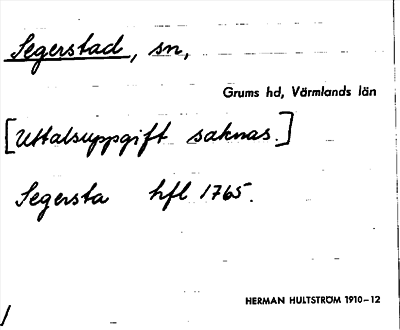 Segerstad, sn,
Grums hd, Värmlands län
[Uttalsuppgift saknas.]
Segersta hfl 1765.
HERMAN HULTSTRÖM 1910–12